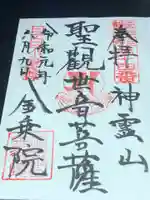 奉拝
神霊山
聖観世音菩薩
金乗院
令和元年
六月九日